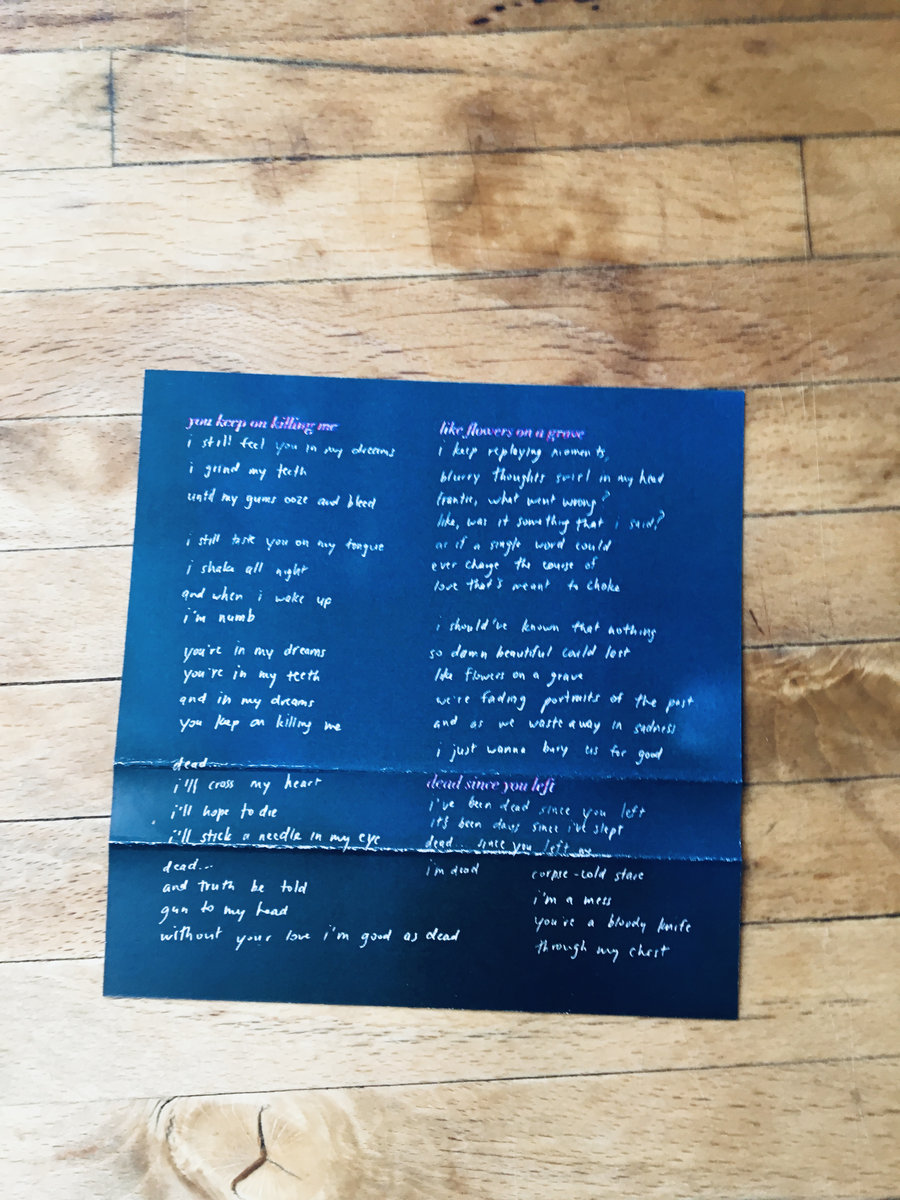 you keep on killing me
i still feel you in my dreams
i grind my teeth
until my gums ooze and bleed
i still taste you on my tongue
i shake all night
and when i wake up
i'm numb
you're in my dreams
you're in my teeth
and in my dreams
you keep on killing me
dead...
i'll cross my heart
i'll hope to die
i'll stick a needle in my eye
dead...
and truth be told
gun to my head
without your love i'm good as dead
like flowers on a grave
i keep replaying moments,
blurry thoughts swirl in my head
frantic, what went wrong?
like, was it something that i said?
as if a single word could
ever change the course of
love that's meant to choke
i should've known that nothing
so damn beautiful could last
like flowers on a grave
we're fading portraits of the past
and as we waste away in sadness
i just wanna bury us for good
dead since you left
i've been dead since you left
it's been days since i've slept
dead... since you left me
i'm dead
corpse-cold stare
i'm a mess
you're a bloody knife
through my chest